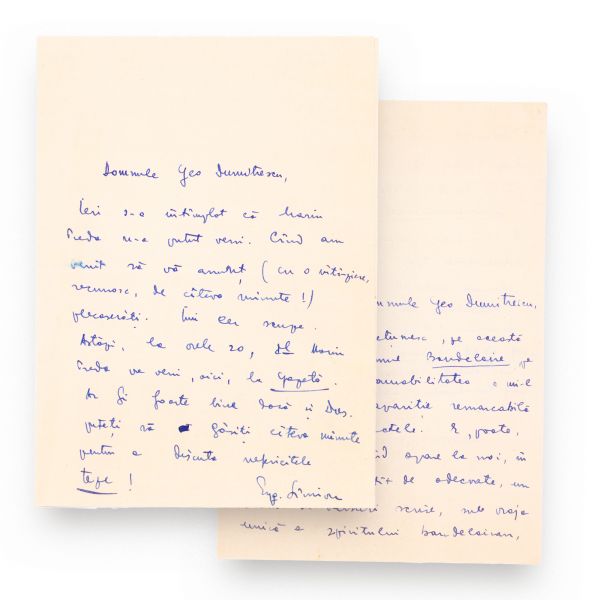 Domnule Geo Dumitrescu,
Ieri s-a întîmplat că Marin
Preda n-a putut veni. Cînd am
venit să vă anunț (cu o întîrziere,
recunosc, de câteva minute!)
plecaserăți. Îmi cer scuze.
Astăzi, la orele 20, dl Marin
Preda va veni, aici, la Gazetă.
Ar fi foarte bine dacă și Dvs.
puteți să găsiți cîteva minute
pentru a discuta nefericitele
teze!
Eug. Simion
mnule Geo Dumitrescu,
țumesc, pe această
mul Baudelaire pe
amabilitatea a mi-l
apariție remarcabilă
E, poate,
apare la noi, în
de adecvate, un
scrise, sub vraja
unică a spiritului baudelairian,